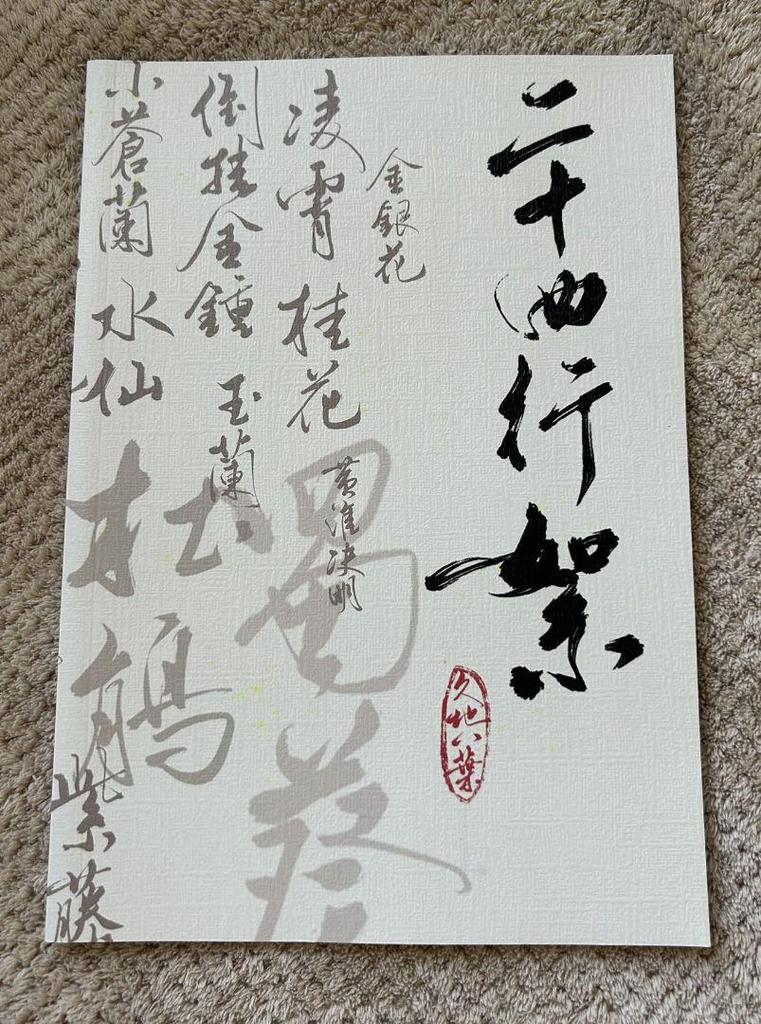 二十四行絮
久地八葉
金銀花
凌霄
桂花
黃槐決明
蜀葵
倒挂金鍾
玉蘭
小蒼蘭
水仙
杜鵑
紫藤